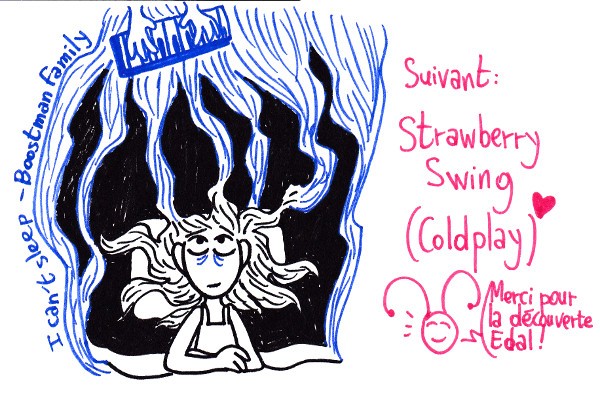 I can't sleep - Boostman family
Suivant:
Strawberry
Swing
(Coldplay)
Merci pour
la découverte
Edal !